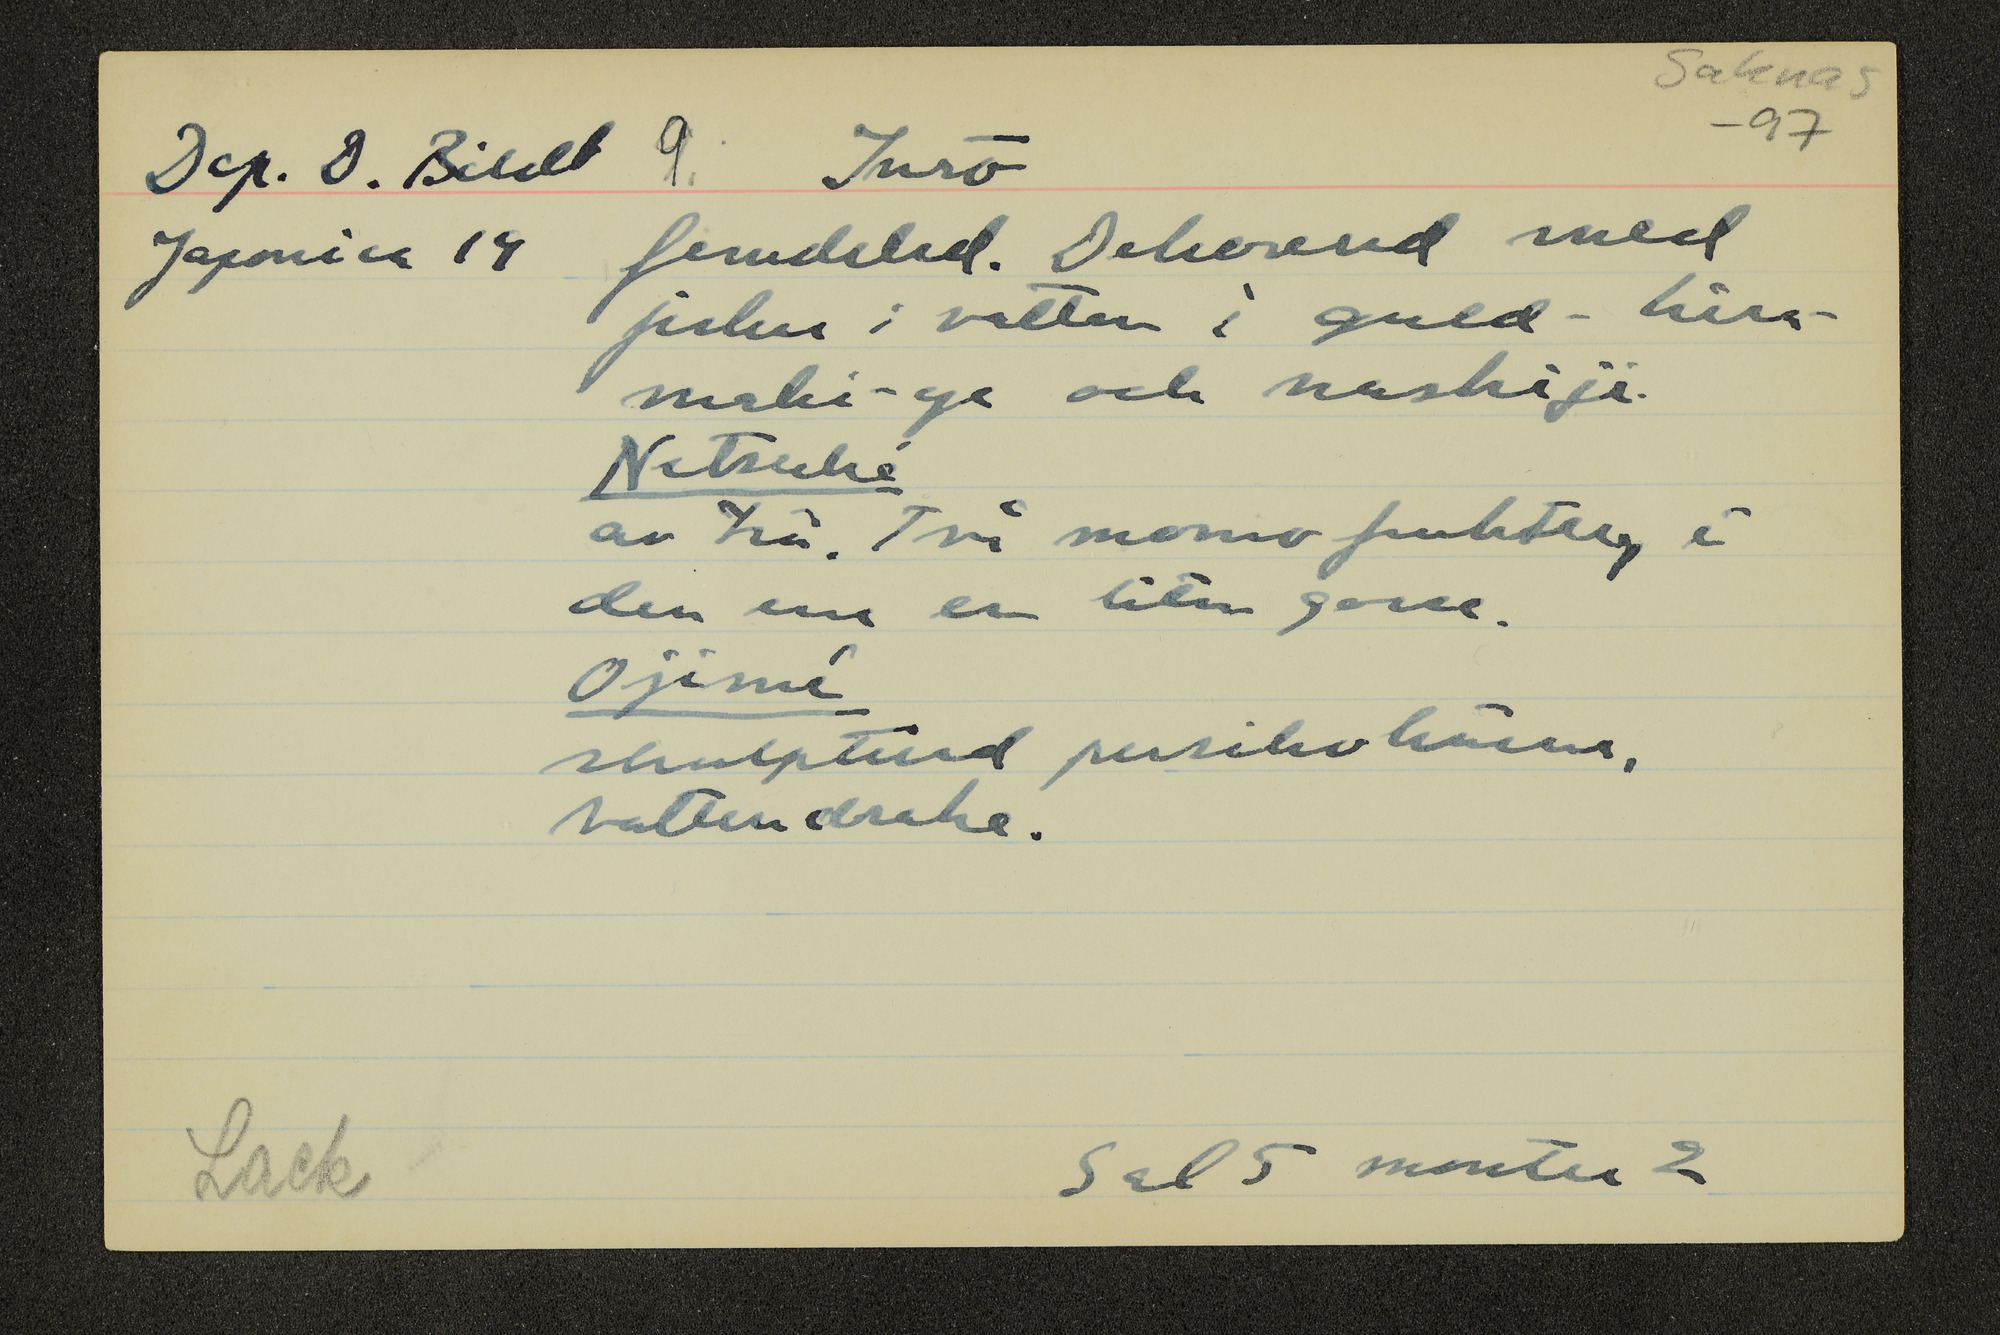 Saknas
-97
Dep. D. Bildt 9. Inrō
Japonica 19 femdelad. Dekorerad med
fiskar i vatten i guld- hira-
maki-ye och nashiji.
Netsuké
av trä. Två momo frukter, i
den ena en liten gosse.
Ojimé
skulpterad persikokärna,
vattendrake.
Lack Sal 5 monter 2